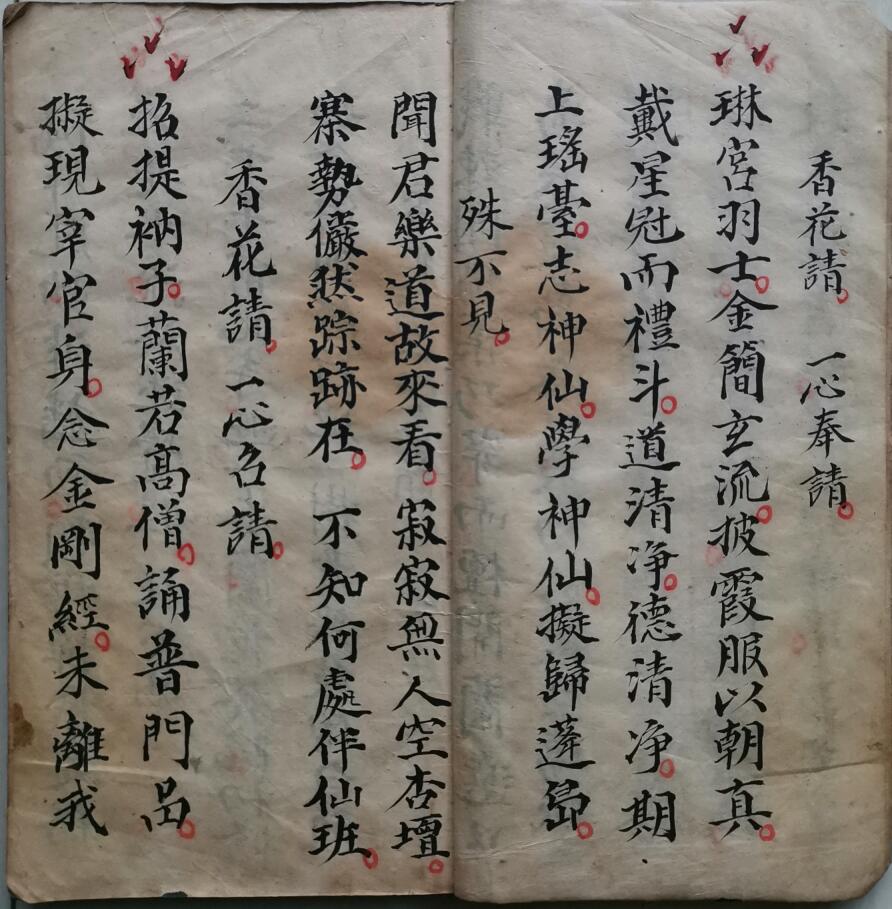 香花請。一心奉請。
琳宮羽士。金簡玄流。披霞服以朝真。
戴星冠而禮斗。道清净。德清净。期
上瑤臺。志神仙。學神仙。擬歸蓬島。
殊不見。
聞君樂道故來看。寂寂無人空杏壇。
寨勢儼然踪跡在。不知何處伴仙班。
香花請。一心召請。
招提衲子。蘭若高僧。誦普門品。
擬現宰官身。念金剛經。未離我